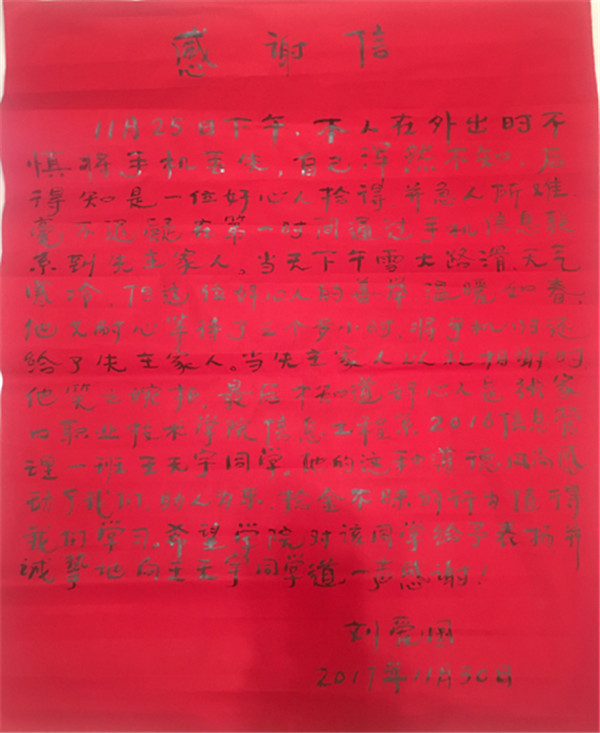 感谢信
11月25日下午，本人在外出时不
慎将手机丢失，自己浑然不知，后
得知是一位好心人拾得并急人所难
毫不迟疑在第一时间通过手机信息联
系到失主家人，当天下午雪大路滑，天气
寒冷，但这位好心人的善举温暖如春，
他又耐心等待了2个多小时，将手机归还
给了失主家人。当失主家人以礼相谢时
他笑言婉拒，最后才知道好心人是张家
口职业技术学院信息工程系2016信息管
理一班王天宇同学。他的这种道德风尚感
动了我们，助人为乐，拾金不昧的行为值得
我们学习。希望学院对该同学给予表扬并
诚挚地向王天宇同学道一声感谢！
刘爱国
2017年11月30日